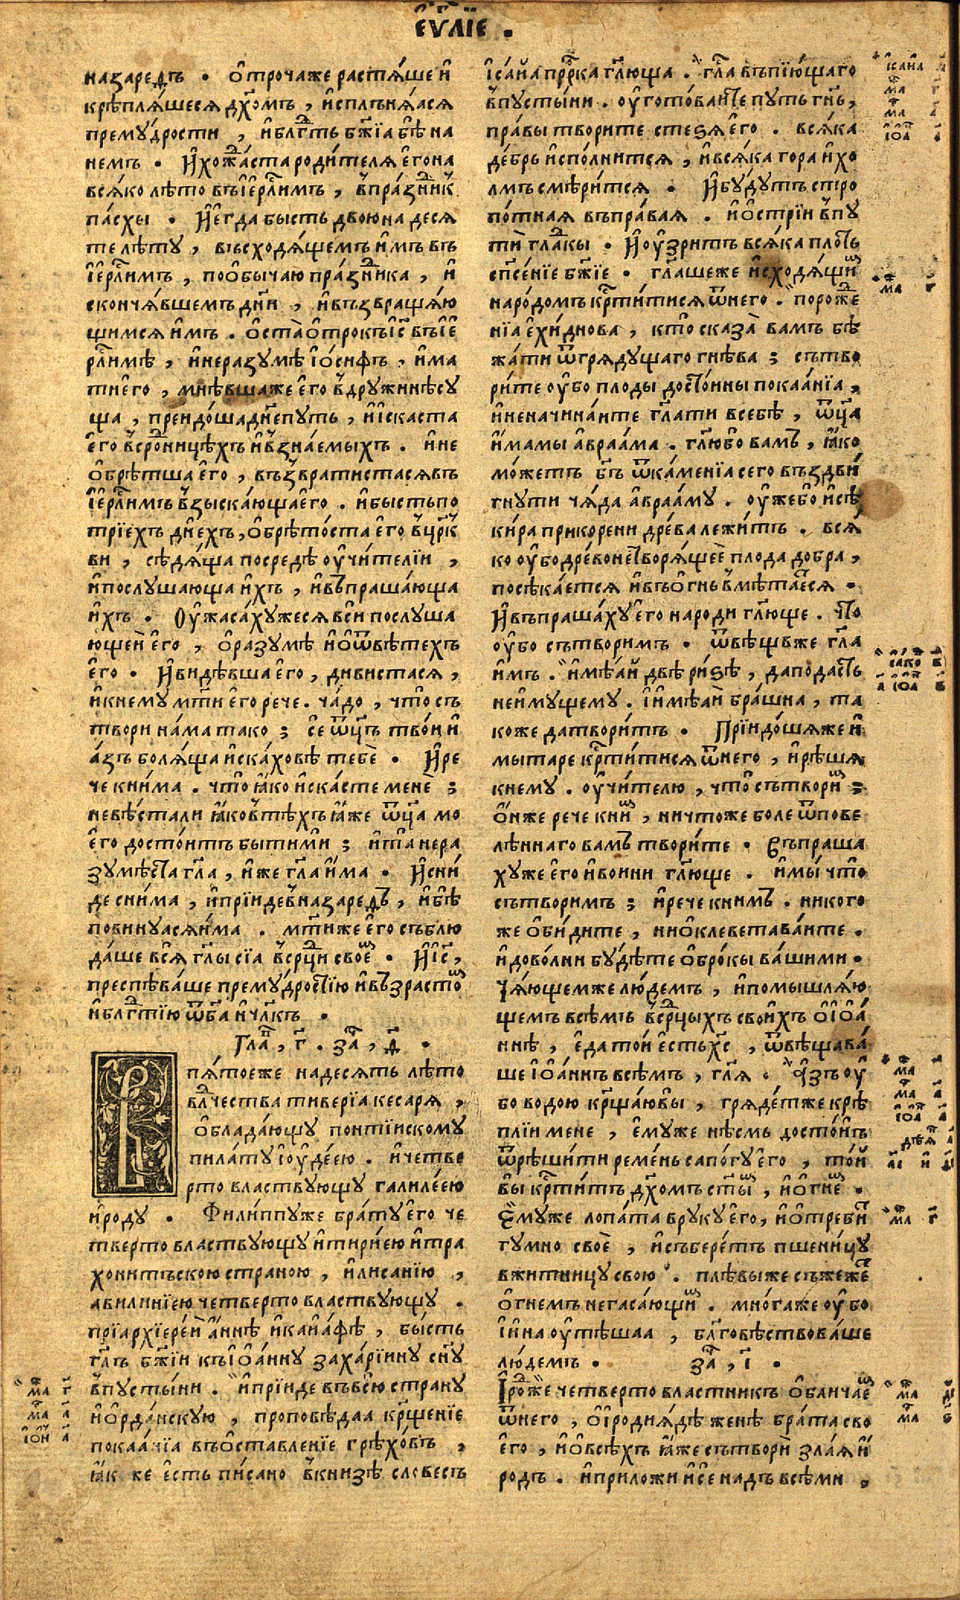 еѵⷢ҇лїе .
назаредъ . ѻ҆трочаже растѧ́ше и҆
крѣплѧ́шесѧ дх҃омъ , и҆сплънѧ́ѧсѧ
премꙋ́дрости , и҆блгⷣть бж҃їа бѣ̀ на
немъ . И҆хожⷣа́ста роди́телѧ є҆гона
всѧ́ко лѣто въі҆ерⷭ҇ли́мъ , впра́зⷣникъ
па́схы . И҆є҆гда бысть двоюна десѧ
те лѣтꙋ , въсходѧ́щемъ и҆мъ въ
і҆ерⷭ҇ли́мъ , поѻ҆бычаю пра́зⷣника , и҆
скончѧ́вшемъ дн҃и , и҆възвращѧ́ю
щимсѧ и҆мъ . ѻ҆ста̀ ѻ҆трокъ і҆с҃ въі҆е
рⷭ҇ли́мѣ , и҆неразꙋмѣ̀ і҆ѡ́сифъ , и҆ма
ти є҆го , мнѣ́вшаже є҆го вдрꙋжинѣсꙋ
ща , преидо́шадн҃е пꙋть , и҆и҆скаста
є҆го всроⷣницѣхъ и҆взнаемыхъ . и҆не
ѻ҆брѣтша є҆го , възвратистасѧ въ
і҆ерⷭ҇ли́мъ взыска́юща є҆го . и҆бысть по
трїехъ дн҃ехъ , ѻ҆брѣто́ста є҆го вцр҃к
ви , сѣдѧ́ща посредѣ ᲂу҆чи́телїи ,
и҆послꙋшающа и҆хъ , и҆въпрашающа
и҆хъ . Оу҆жаса́хꙋжесѧ вси послꙋша
ющеи є҆го , ѻ҆разꙋмѣ и҆ѻ҆ѿвѣтехъ
є҆го . И҆видѣвша є҆го , дивистасѧ ,
и҆кнемꙋ мт҃и є҆го рече . ча́до , что̀ съ
твори на́ма тако ; се ѿц҃ъ тво́и и҆
а҆́зъ болѧ́ща и҆ска́ховѣ тебѐ . И҆ре
че кни́ма . что̀ ꙗ҆́ко и҆ска́сте менѐ ;
невѣстали ꙗ҆́ко втѣхъ ꙗ҆́же ѿц҃а мо
є҆го досто́итъ быти ми ; и҆та̀ нера
зꙋмѣⷭ҇та гл҃а , и҆же гл҃а и҆́ма . И҆сни́
де сни́ма , и҆прїи́де вназаредъ , и҆бѣ̀
повинꙋѧсѧ и҆́ма . мт҃иже є҆го съблю
да́ше всѧ̀ гл҃ы сїа врⷣци свое . И҆і҆с҃ ,
преспѣва́ше премꙋ́дроⷭ҇тїю и҆възрасто
и҆блгⷣтїю ѿб҃а и҆чл҃къ .
Глаⷡ , г҃ . заⷱ , д҃ .
пѧ́тоеже надесѧть лѣто
влⷣчества тиверїа кесарѧ ,
ѻ҆блада́ющꙋ понтїискомꙋ
пилатꙋ і҆ᲂу҆де́ею . и҆четве
рто властвꙋющꙋ галиле́ею
и҆родꙋ . Филиппꙋже бра́тꙋ є҆го че
тверто властвꙋющꙋ и҆тꙋри́ею и҆тра
хонитьскою страною , и҆лисанїю ,
авилинїею четверто властвꙋющꙋ .
прїархїере́и а҆́ннѣ и҆каїа́фѣ , бы́сть
гл҃ъ бж҃їи къі҆ѡ҆а́ннꙋ заха́рїинꙋ сн҃ꙋ
впꙋсты́ни . и҆прїи́де въвсю странꙋ
и҆ѻ҆рда́нскꙋю , проповѣдаа крⷭ҇щенїе
покаа́нїа въѻ҆ставленїе грѣхо́въ ,
ꙗ҆к же є҆сть пи́сано вкнизѣ словесъ
І҆са́йа прⷪ҇рка гл҃юща . гл҃а въпїю́щаго
впꙋсты́ни . ᲂу҆гото́ваите пꙋть гн҃ь ,
пра́вы твори́те стеѕѧ̀ є҆го . всѧ́ка
де́брь и҆спо́лнитсѧ , и҆всѧ́ка гора и҆хо
лмъ смѣри́тсѧ . И҆бꙋ́дꙋтъ стро
по́тнаѧ въпра́ваѧ . и҆ѻ҆стрїи впꙋ
ти̑ гла́кы . И҆ᲂу҆́зритъ всѧ́ка плоⷮь
сп҃се́нїе бж҃їе . гл҃ашеже и҆сходѧ́щи
наро́домъ крⷭ҇ти́тисѧ ѿ него . порожⷣе
нїа є҆хи́днова , кто̀ сказа̀ вамъ бѣ
жа́ти ѿ грѧдꙋщаго гнѣва ; сътво
ри́те ᲂу҆бо плоды досⷮо́ины покаа́нїа ,
и҆неначина́ите гл҃ати всебѣ̀ , ѿц҃а
и҆́мамы а҆враа́ма . гл҃юбо вамъ , ꙗ҆́ко
мо́жетъ бг҃ъ ѿка́менїа сего въздви́
гнꙋти чѧ́да а҆враа́мꙋ . ᲂу҆же бо и҆сѣ
ки́ра прикорени дре́ва лежи́тъ . всѧ́
ко ᲂу҆бодре́во неⷭ҇творѧ́щеѐ плода добра ,
посѣка́етсѧ и҆въѻ҆гнь вмѣта́есѧ .
И҆въпраша́хꙋ є҆го народи гл҃юще . что
ᲂу҆бо сътворимъ . ѿвѣщѣ́вже гл҃а
и҆мъ . и҆мѣ́ай двѣ̀ ри́зѣ , даподаⷭ҇ть
неимꙋщемꙋ . і҆и҆мѣ́ай бра́шна , та
коже да твори́тъ . Прїидо́шѧже и҆
мытаре крⷭ҇ти́тисѧ ѿ него , и҆рѣша
кнемꙋ . ᲂу҆чи́телю , что̀ сътвори ;
ѻ҆́нже рече кни , ничтоже боле ѿпове
лѣннаго вамъ твори́те . Въпраша
хꙋже є҆го и҆во́ини гл҃юще . и҆мы что̀
сътворимъ ; и҆рече книмъ . никого
же ѻ҆би́дите , ниѻ҆клеветава́ите .
и҆дово́лни бꙋ́дѣте ѻ҆бро́кы ва́шими .
Чѧ́ющемже лю́демъ , и҆помышлѧ́ю
щемъ всѣмъ всрⷣцыхъ свои́хъ ѻ҆і҆ѡ҆а́
ннѣ , є҆да то́и є҆сть х҃с , ѿвѣщава́
ше і҆ѡ҆а́ннъ всѣмъ , гл҃ѧ . а҆́зъ ᲂу҆
бо водою крⷭ҇ща́ювы , грѧде́тже крѣ
плїи мене , є҆мꙋже нѣсмь досто́инъ
ѿрѣши́ти ремень сапогꙋ є҆го , то́й
вы крⷭ҇ти́тъ дх҃омъ ст҃ы , и҆ѻ҆гне .
Є҆мꙋже лопа́та врꙋкꙋ є҆го , и҆ѻ҆треби
гꙋмно своѐ , и҆събере́тъ пшени́цꙋ
вжитницꙋ свою . плѣ́выже съжеже
ѻ҆гнемъ негаса́ющи . мно́гаже ᲂу҆бо
и҆и҆на ᲂу҆тѣшаа , блг҃овѣствова́ше
лю́демъ . заⷱ , і҃ .
И҆роⷣже четверто вла́стникъ ѻ҆блича́е
ѿ него , ѻ҆и҆родиѧ́дѣ женѣ̀ бра́та сво
є҆го , и҆ѻ҆всѣ́хъ ꙗ҆́же сътвори зла́ѧ и҆́
родъ . и҆приложи и҆се надъ всѣми ,